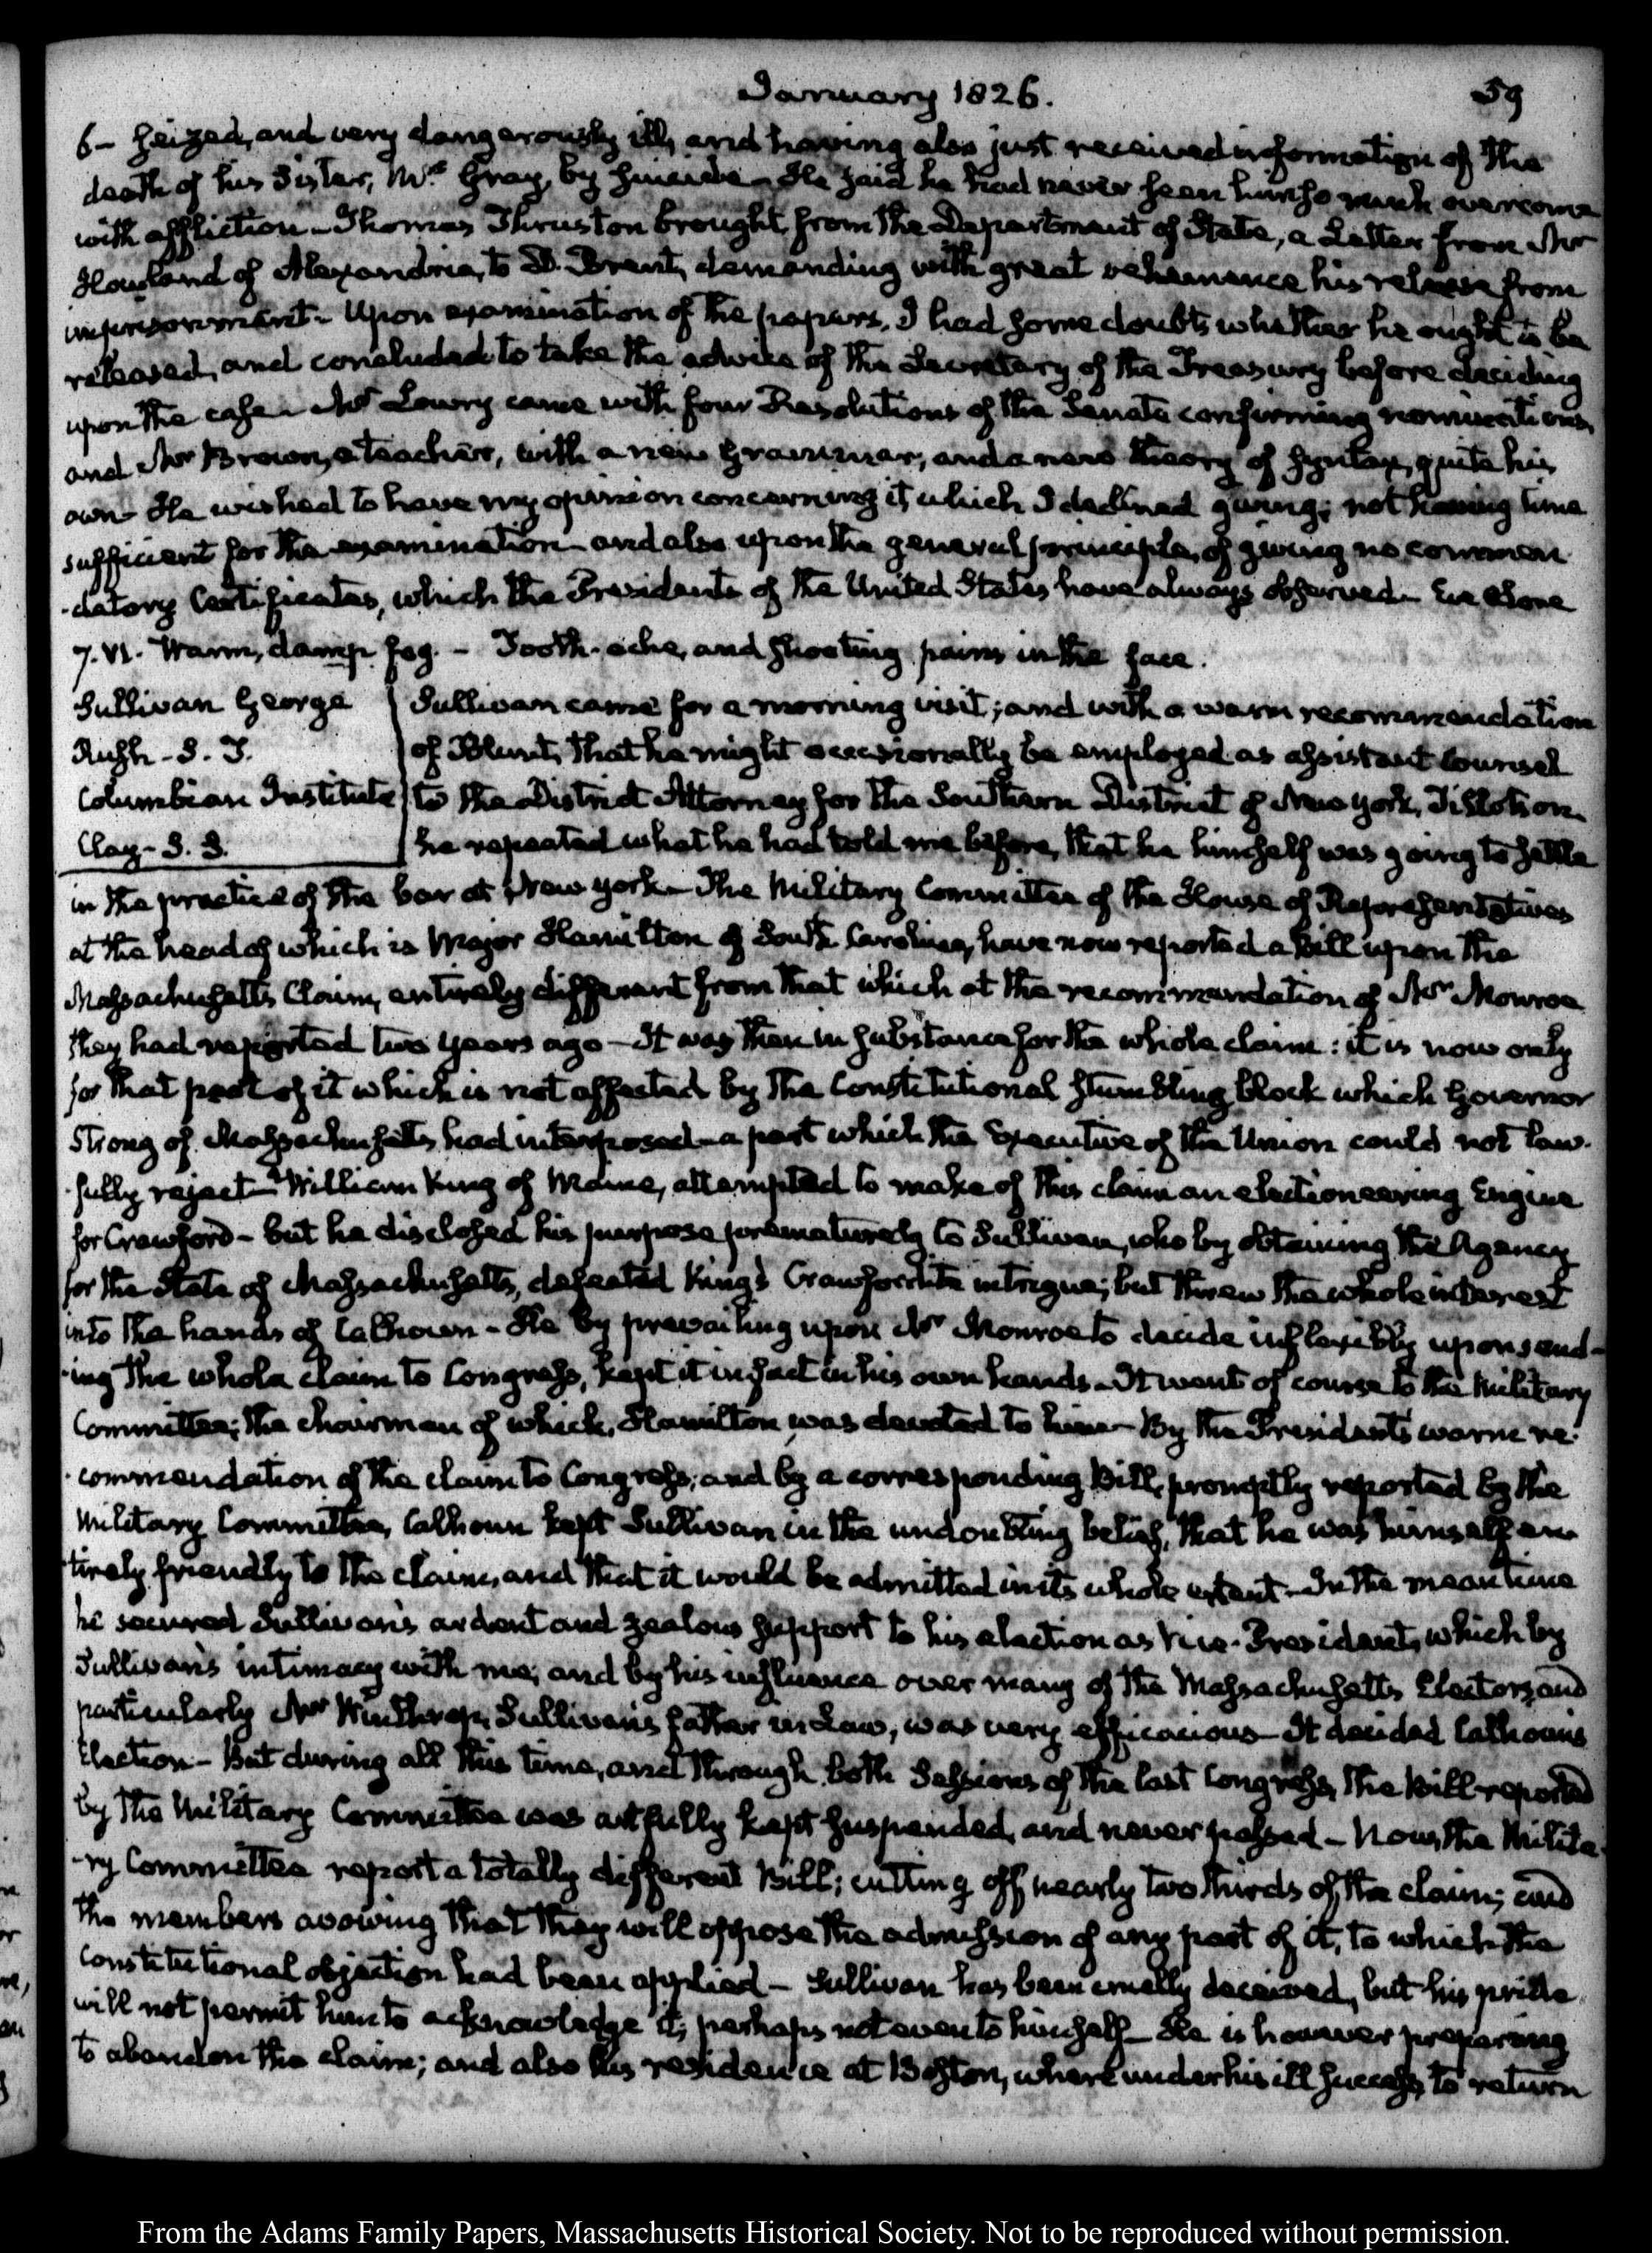 January 1826.
59
6- seized, and very dangerously ill, and having also just received information of the
death of his Sister, Mrs. Gray, by suicide- He said he had never seen him so much overcome
with affliction- Thomas Thruston brought from the Department of State, a Letter from Mr
Howland of Alexandria, to D. Brent, demanding with great vehemence his release from
imprisonment- Upon examination of the papers, I had some doubts whether he ought to be
released, and concluded to take the advice of the Secretary of the Treasury before deciding
upon the case- Mr Lowry came with four Resolutions of the Senate confirming nominations,
and Mr Brown, a teacher, with a new Grammar, and a new theory of Syntax, quite his
own- He wished to have my opinion concerning it, which I declined giving; not having time
sufficient for the examination- and also upon the general principle, of giving no commen-
-datory Certificates, which the Presidents of the United States have always observed- Eve alone
7. VI. Warm, damp fog. - Tooth-ache, and shooting pains in the face.
Sullivan George
Rush - S. T.
Columbian Institute
Clay - S. S.
Sullivan came for a morning visit; and with a warm recommendation
of Blunt, that he might occasionally be employed as assistant Counsel
to the District Attorney for the Southern District of New York, Tillotson.
he repeated what he had told me before, that he himself was going to settle
in the practice of the bar at New York- The Military Committee of the House of Representatives
at the head of which is Major Hamilton of South Carolina, have now reported a bill upon the
Massachusetts Claim, entirely different from that which at the recommendation of Mr Monroe
they had reported two years ago- It was then in substance for the whole claim: it is now only
for that part of it which is not affected by the Constitutional stumbling block which Governor
Strong of Massachusetts had interposed- a part which the Executive of the Union could not law-
-fully reject- William King of Maine, attempted to make of this claim an electioneering Engine
for Crawford- but he disclosed his purpose prematurely to Sullivan, who by obtaining the Agency
for the State of Massachusetts, defeated King's Crawfordite intrigue; but threw the whole interest
into the hands of Calhoun- He by prevailing upon Mr Monroe to decide inflexibly upon send-
-ing the whole claim to Congress, kept it in fact in his own hands- It went of course to the Military
Committee; the chairman of which, Hamilton, was devoted to him- By the President's warm re-
-commendation of the claim to Congress; and by a corresponding Bill, promptly reported by the
Military Committee, Calhoun kept Sullivan in the undoubting belief, that he was himself en-
-tirely friendly to the claim, and that it would be admitted in its whole extent- In the mean time
he secured Sullivan's ardent and zealous support to his election as Vice-President, which by
Sullivan's intimacy with me, and by his influence over many of the Massachusetts Electors, and
particularly Mr Winthrop, Sullivan's father in Law, was very efficacious- It decided Calhoun's
Election- But during all this time, and through both Sessions of the last Congress, the bill reported
by the Military Committee was artfully kept suspended, and never passed- Now, the Milita-
-ry Committee report a totally different Bill; cutting off nearly two thirds of the claim; and
the members avowing that they will oppose the admission of any part of it, to which the
Constitutional objection had been applied- Sullivan has been cruelly deceived, but his pride
will not permit him to acknowledge it; perhaps not even to himself- He is however preparing
to abandon the claim; and also his residence at Boston, where under his ill success, to return
From the Adams Family Papers, Massachusetts Historical Society. Not to be reproduced without permission.